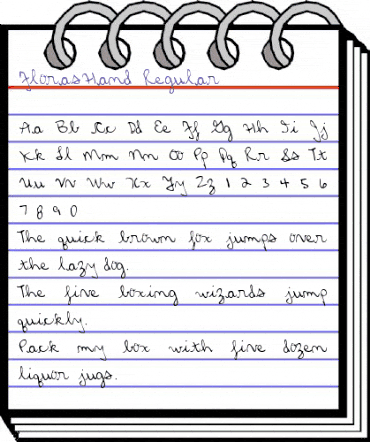 FlorasHand Regular
Aa Bb Cc Dd Ee Ff Gg Hh Ii Jj
Kk Ll Mm Nn Oo Pp Qq Rr Ss Tt
Uu Vv Ww Xx Yy Zz 1 2 3 4 5 6
7 8 9 0
The quick brown fox jumps over
the lazy dog.
The five boxing wizards jump
quickly.
Pack my box with five dozen
liquor jugs.